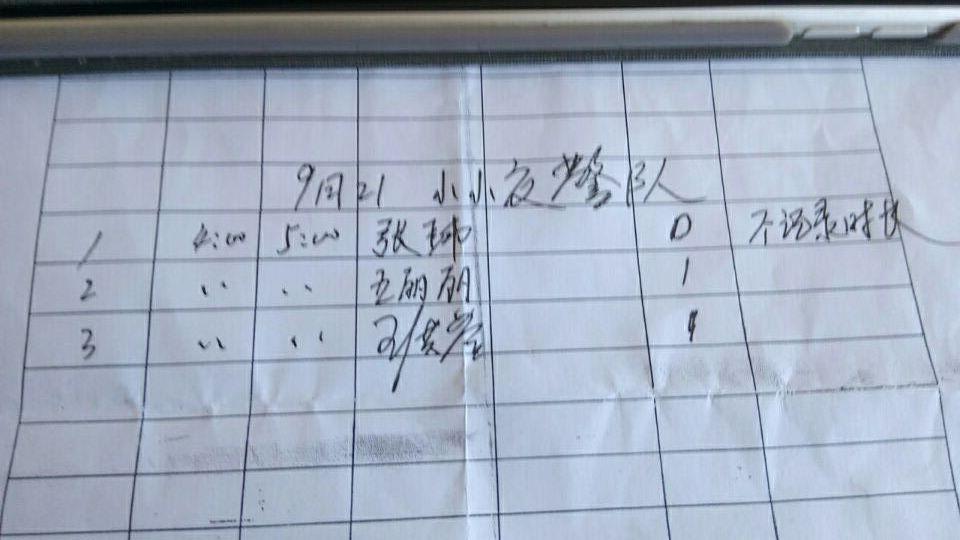 9月21 小小交警队
1 4:00 5:00 张琳 0 不记录时长
2 〃 〃 王丽丽 1
3 〃 〃 1